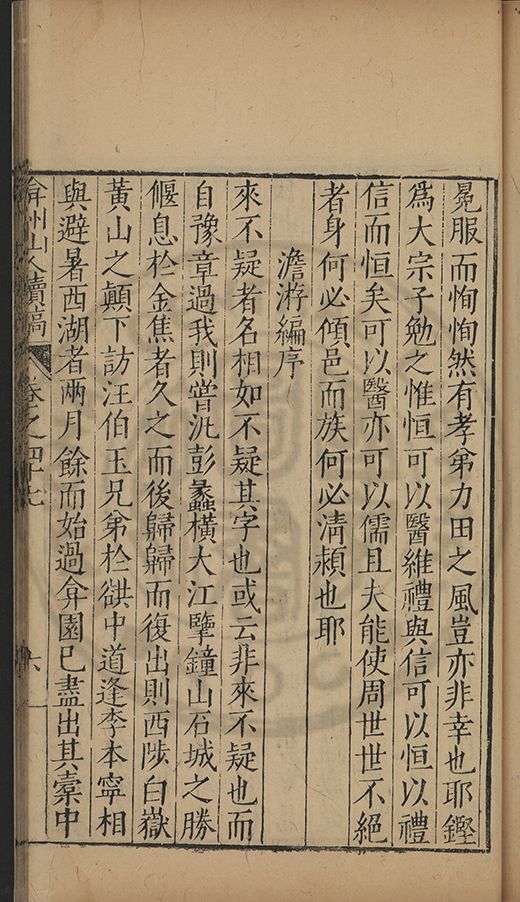 冕服而恂恂然有孝弟力田之風豈亦非幸也耶鏗
爲大宗子勉之惟恒可以醫維禮與信可以恒以禮
信而恒矣可以醫亦可以儒且夫能使周世世不絕
者身何必傾邑而族何必淸潁也耶
澹游編序
來不疑者名相如不疑其字也或云非來不疑也而
自豫章過我則嘗汎彭蠡橫大江擥鐘山石城之勝
偃息於金焦者久之而後歸歸而復出則西陟白嶽
黃山之顛下訪汪伯玉兄弟於䜪中道逢李本寧相
與避暑西湖者兩月餘而始過弇園已盡出其槀中
弇州山人續稿
卷之四十七
六